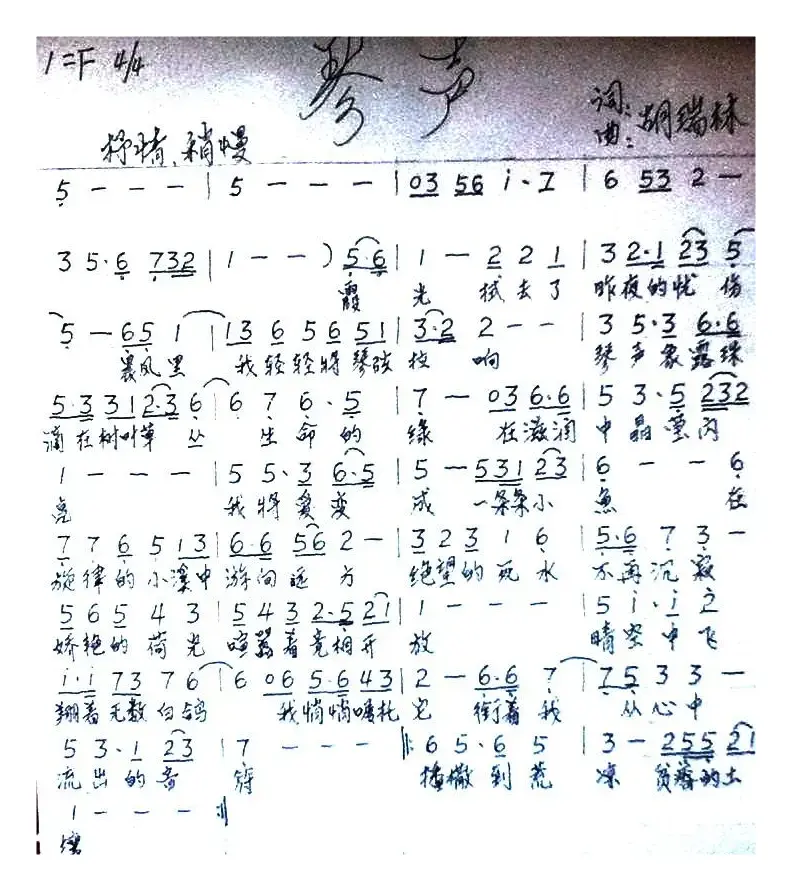 1=F 4/4
琴声
词:
曲: 胡瑞林
抒情、稍慢
5 - - - | 5 - - - | 03 56 i·7 | 6 53 2 -
3 5·6 732 | 1 - - ) 5·6 | 1 - 2 2 1 | 3 2·1 23 5
霞 光 拭去了 昨夜的忧 伤
5 - 65 1 | 13 6 5 6 51 | 3·2 2 - - | 3 5·3 6·6
晨风里 我轻轻将琴弦 拨 响 琴声象露珠
5·3 31 2·3 6 | 6 7 6·5 | 7 - 03 6·6 | 5 3·5 232
滴在树叶草 丛 生命的 绿 在滋润 中晶莹闪
1 - - - | 5 5·3 6·5 | 5 - 531 23 | 6 - - 6
亮 我将爱变 成 一条条小 鱼 在
7 7 6 5 13 | 6·6 56 2 - | 3 2 3 1 6 | 5·6 7 3 -
旋律的小溪中 游向远 方 绝望的死水 不再沉寂
5 6 5 4 3 | 5 4 3 2·5 21 | 1 - - - | 5 i·i 2
娇艳的荷光 喧嚣着竞相开 放 晴空中飞
i·i 73 7 6 | 6 06 5·6 43 | 2 - 6·6 7 | 75 3 3 -
翔着无数白鸽 我悄悄嘱托 它 衔着我 从心中
5 3·1 23 | 7 - - - |: 6 5·6 5 | 3 - 255 21
流出的音 符 播撒到荒 凉 贫瘠的土
1 - - - :|
壤